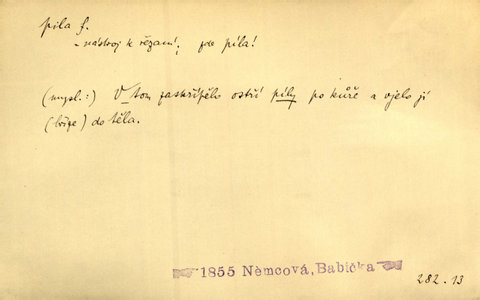 pila f.
- nástroj k řezání; zde píla!
(mysl.:) V tom zaskřípělo ostří píly po kůře a vjelo jí
(bříze) do těla.
1855 Němcová, Babička
282.13